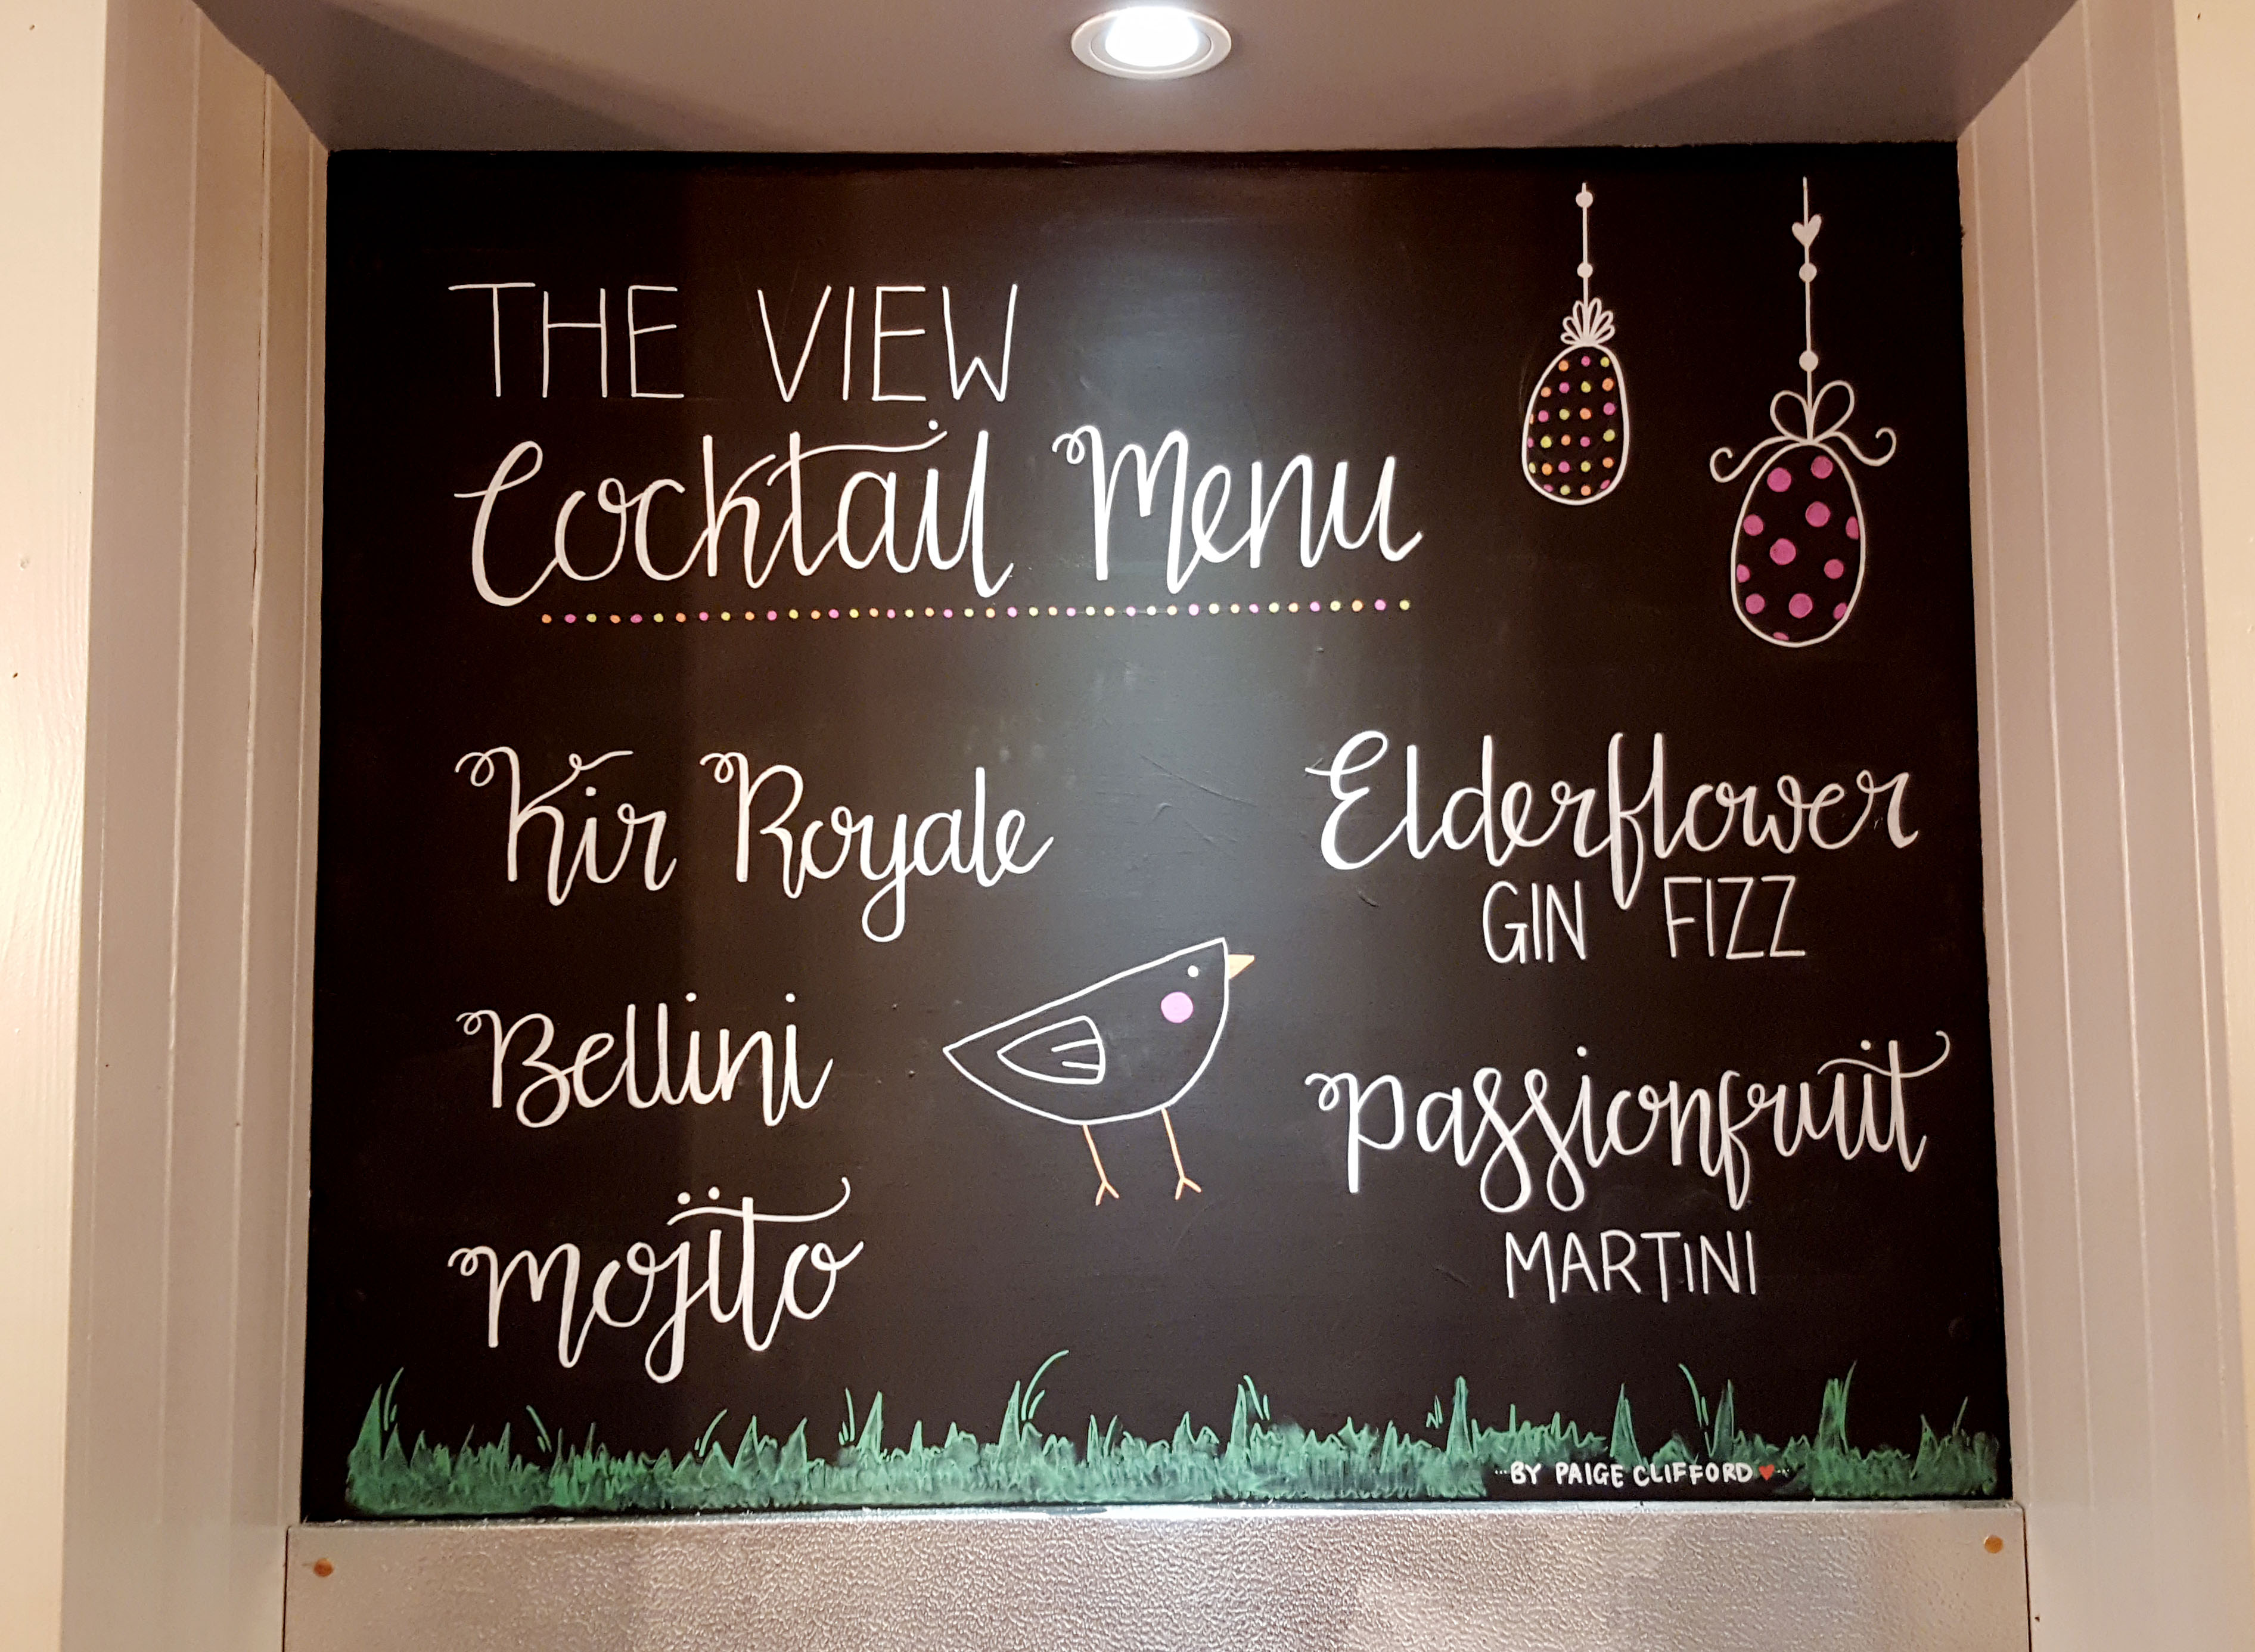 THE VIEW
Cocktail Menu
Kir Royale
Bellini
Mojito
Elderflower
GIN FIZZ
Passionfruit
MARTINI
BY PAIGE CLIFFORD